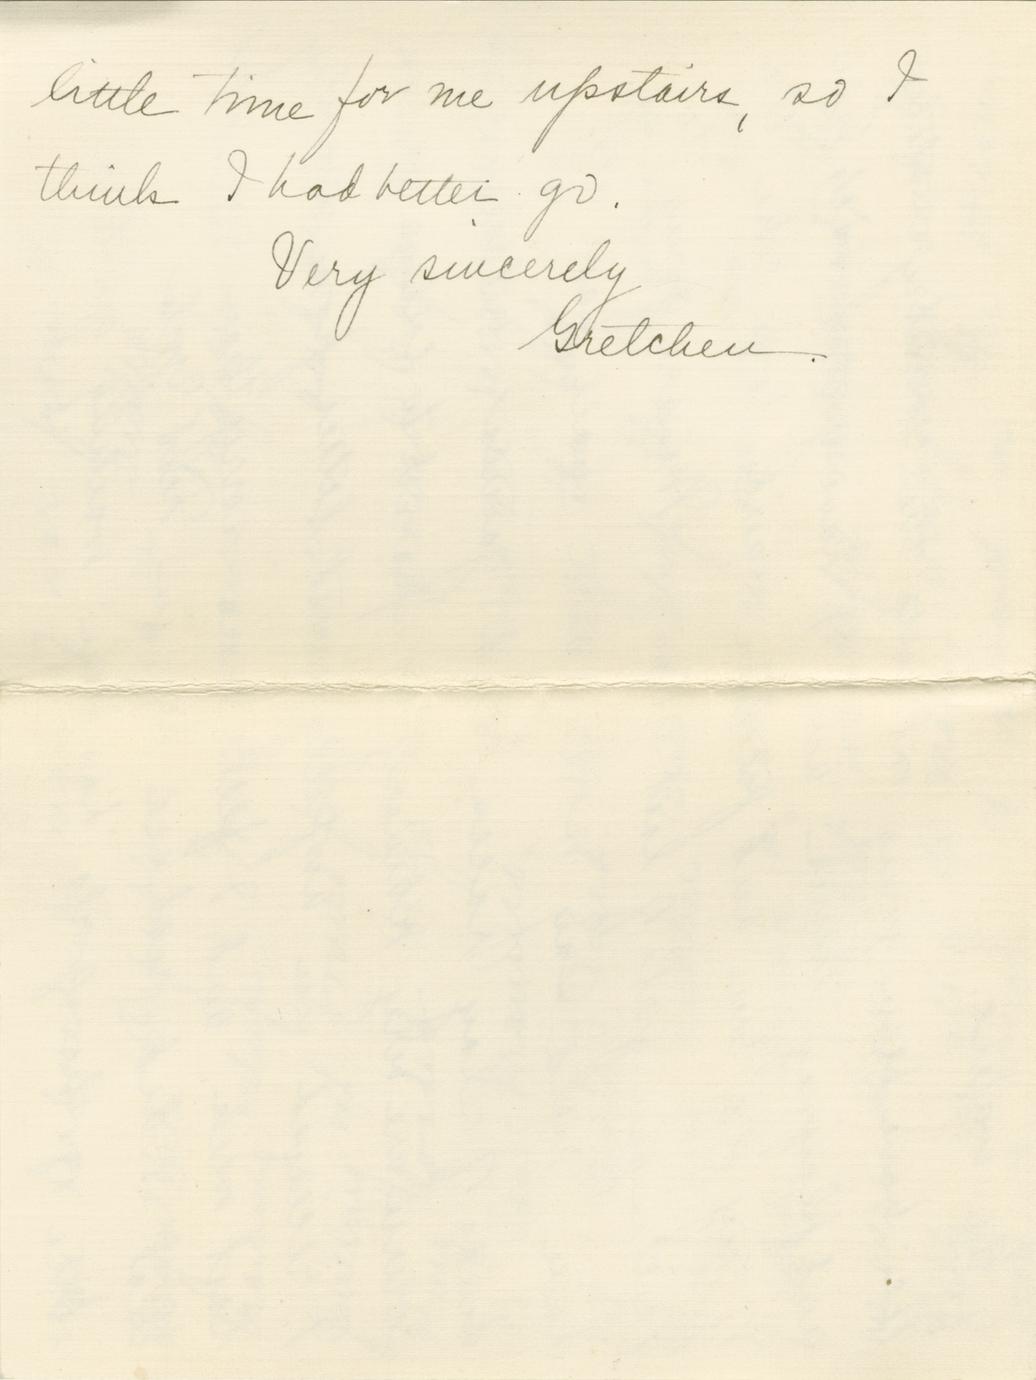 little time for me upstairs, so I
think I had better go.
Very sincerely
Gretchen.